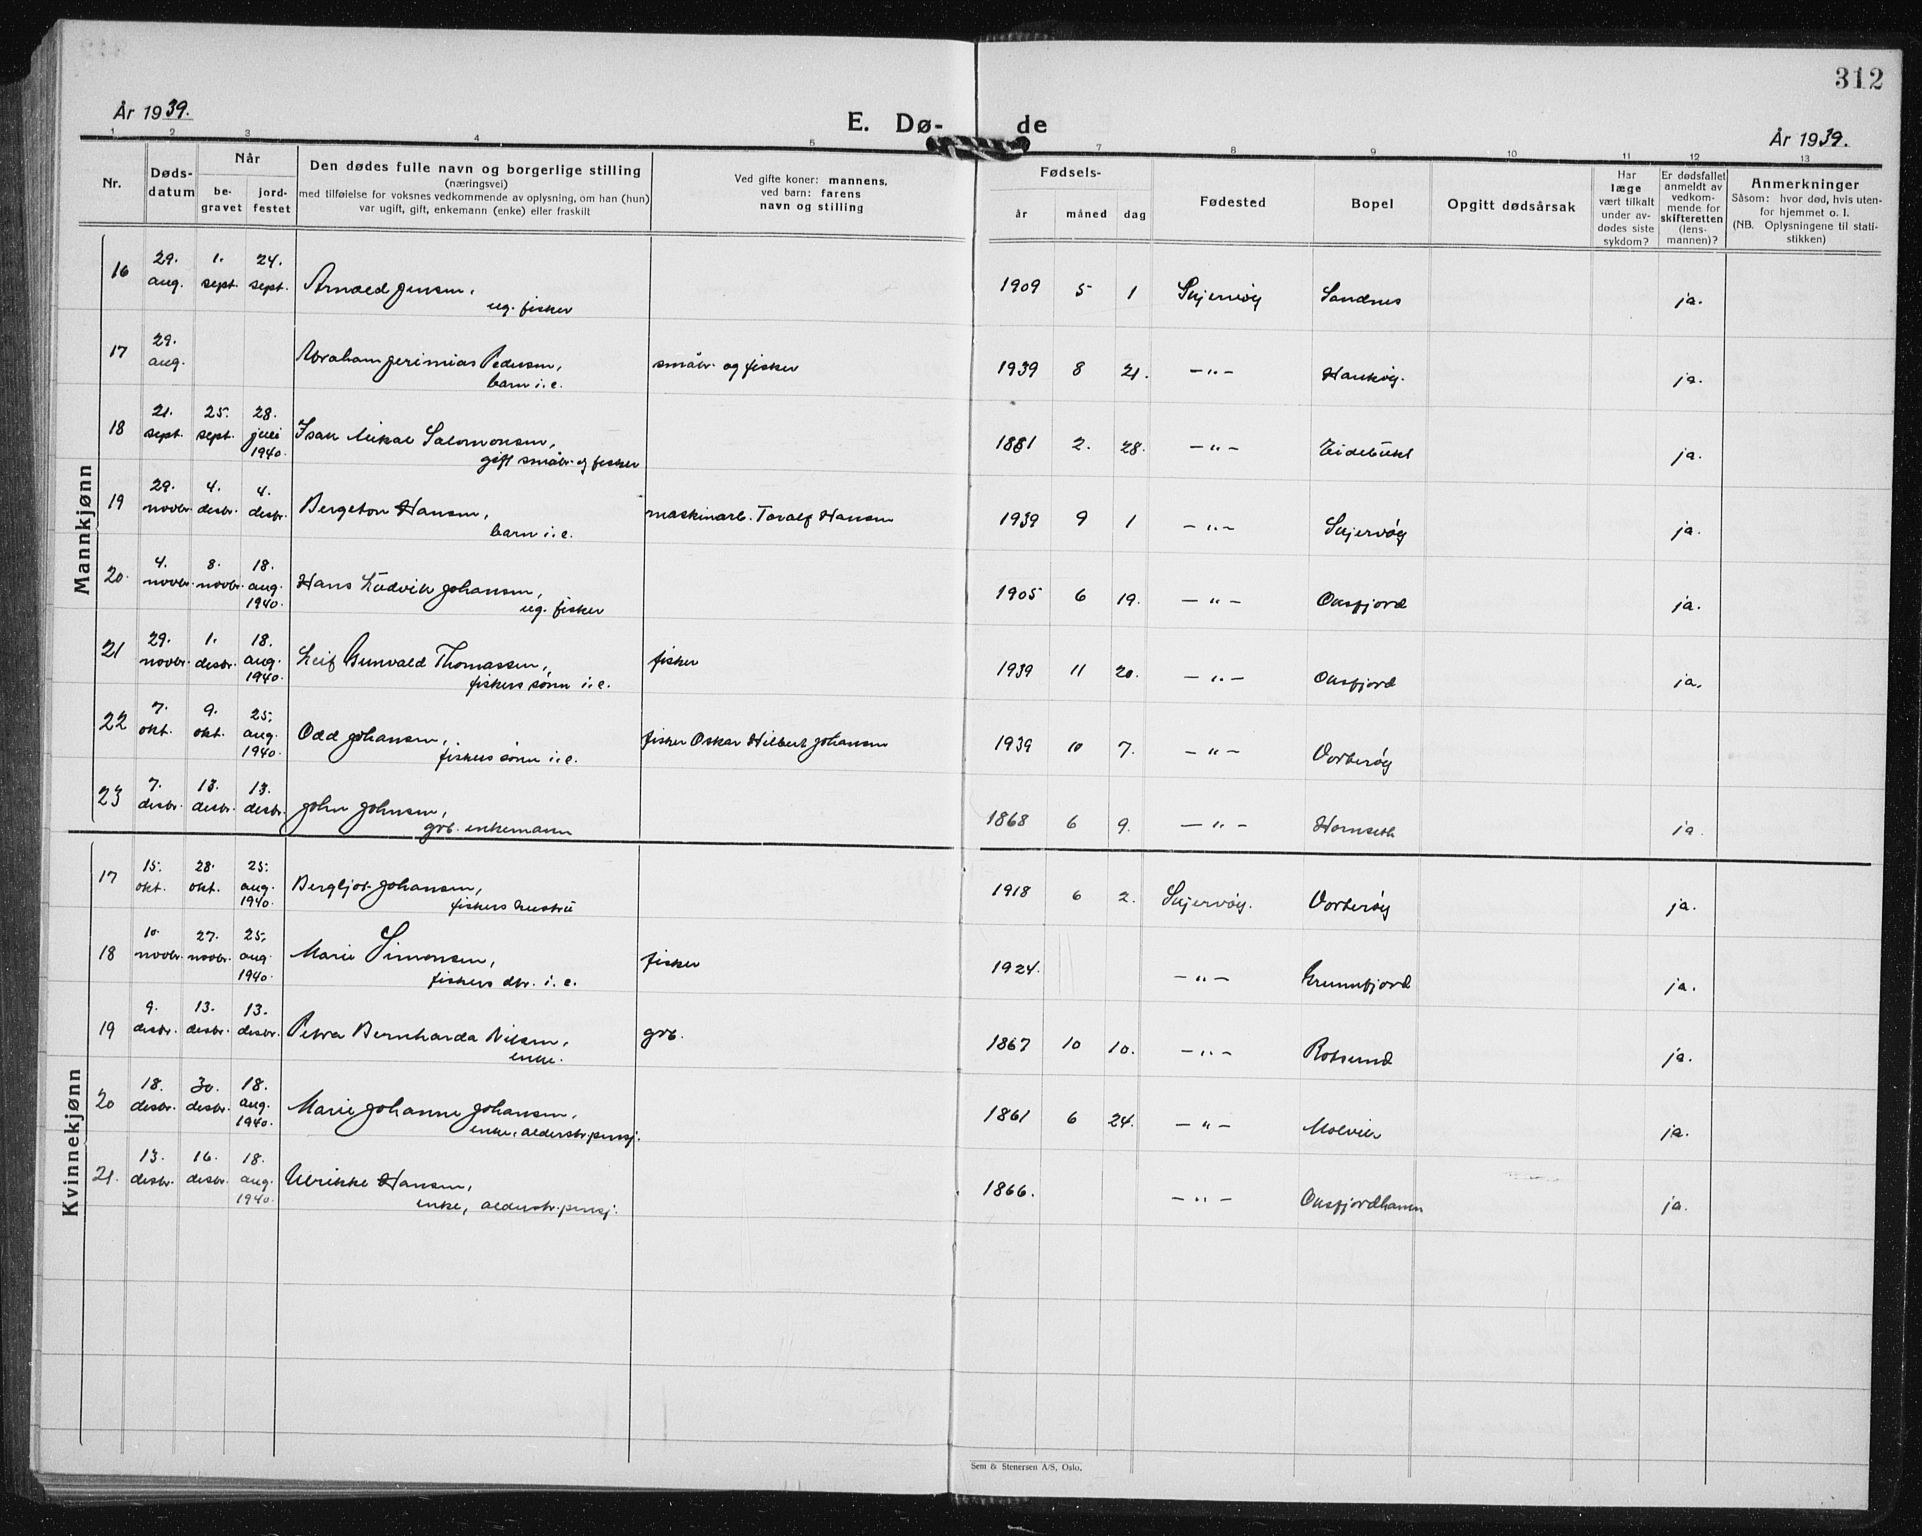 312
År 1939.
E. Dø- de
År 1939.
1 2 3 4 5 7 8 9 10 11 12 13
Nr.
Døds-
datum
Når
be-
gravet
jord-
festet
Den dødes fulle navn og borgerlige stilling
(næringsvei)
med tilføielse for voksnes vedkommende av oplysning, om han (hun)
var ugift, gift, enkemann (enke) eller fraskilt
Ved gifte koner: mannens,
ved barn: farens
navn og stilling
Fødsels-
år måned dag
Fødested
Bopel
Opgitt dødsårsak
Har
læge
vært tilkalt
under av-
dødes siste
sykdom?
Er dødsfallet
anmeldt av
vedkom-
mende for
skifteretten
(lens-
mannen)?
Anmerkninger
Såsom: hvor død, hvis uten-
for hjemmet o. l.
(NB. Oplysningene til stati-
stikken)
Mannkjønn
16 29. aug. 1. sept. 24. sept. Arnold Jensen, ug. fisker 1909 5 1 Skjervøy Sandnes ja.
17 29. aug. Abraham Jerimias Pedersen, barn i.e. småbr. og fisker 1939 8 21. -"- Haukøy. ja.
18 21. sept. 25. sept. 28. juli 1940. Isak Mikal Salomonsen, gift småbr. og fisker 1881 2. 28. -"- Eidebukt ja.
19 29. novbr. 4. desbr. 4. desbr. Bergeton Hansen, barn i.e. maskinarb. Toralf Hansen 1939 9 1 -"- Skjervøy ja.
20. 4. novbr. 8. novbr. 18. aug. 1940. Hans Ludvik Johansen, ug. fisker 1905 6 19. -"- Oksfjord ja.
21 29. novbr. 1. desbr. 18. aug. 1940. Leif Gunvald Thomassen, fiskers sønn i.e. fisker 1939 11 20. -"- Oksfjord ja.
22 7. okt. 9. okt. 25. aug. 1940. Odd Johansen, fiskers sønn i.e. fisker Oskar Hilbert Johansen 1939 10 7. -"- Vorterøy
23 7. desbr. 13. desbr. 13. desbr. John Johnsen, grb. enkemann 1868 6 9. -"- Hamneth ja.
Kvinnekjønn
17 15. okt. 28. okt. 25. aug. 1940. Bergljot Johansen, fiskers hustru 1918 6 2. Skjervøy. Vorterøy ja.
18 10. novbr. 27. novbr. 25. aug. 1940. Marie Simonsen, fiskers dtr. i.e. fisker 1924. -"- Grunnfjord ja.
19 9. desbr. 13. desbr. 13. desbr. Petra Bernharda Nilsen, enke. grb. 1867 10 10. -"- Rotsund ja.
20 18. desbr. 30. desbr. 18. aug. 1940. Marie Johanne Johansen, enke, alderstr.pensj. 1861 6 24. -"- Molvik ja.
21. 13. desbr. 16. desbr. 18. aug. 1940. Ulrikke Hansen, enke, alderstr.pensj. 1866. -"- Oksfjordhamn ja.
Sem & Stenersen A/S, Oslo.